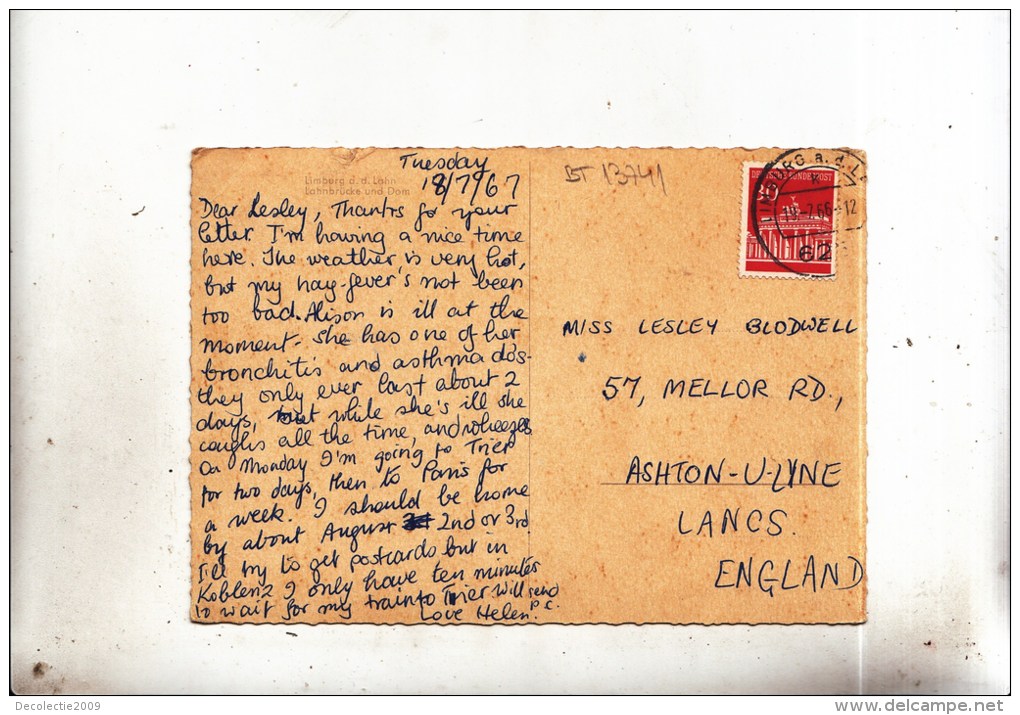 Tuesday
18/7/67
Limburg a. d. Lahn
Lahnbrücke und Dom
Dear Lesley, Thanks for your
letter. I'm having a nice time
here. The weather is very hot,
but my hay-fever's not been
too bad. Alison is ill at the
moment - she has one of her
bronchitis and asthma do's -
they only ever last about 2
days, but while she's ill she
coughs all the time, and wheezes.
On Monday I'm going to Trier
for two days, then to Paris for
a week. I should be home
by about August 2nd or 3rd
I'll try to get postcards but in
Koblenz I only have ten minutes
to wait for my train to Trier Will send
p.c.
Love Helen.
BT 13741
DEUTSCHE BUNDESPOST
LIMBURG a. d. L
18.-7.66-12
62
MISS LESLEY BLODWELL
57, MELLOR RD.,
ASHTON-U-LYNE
LANCS.
ENGLAND
Decolectie2009
www.delcampe.net